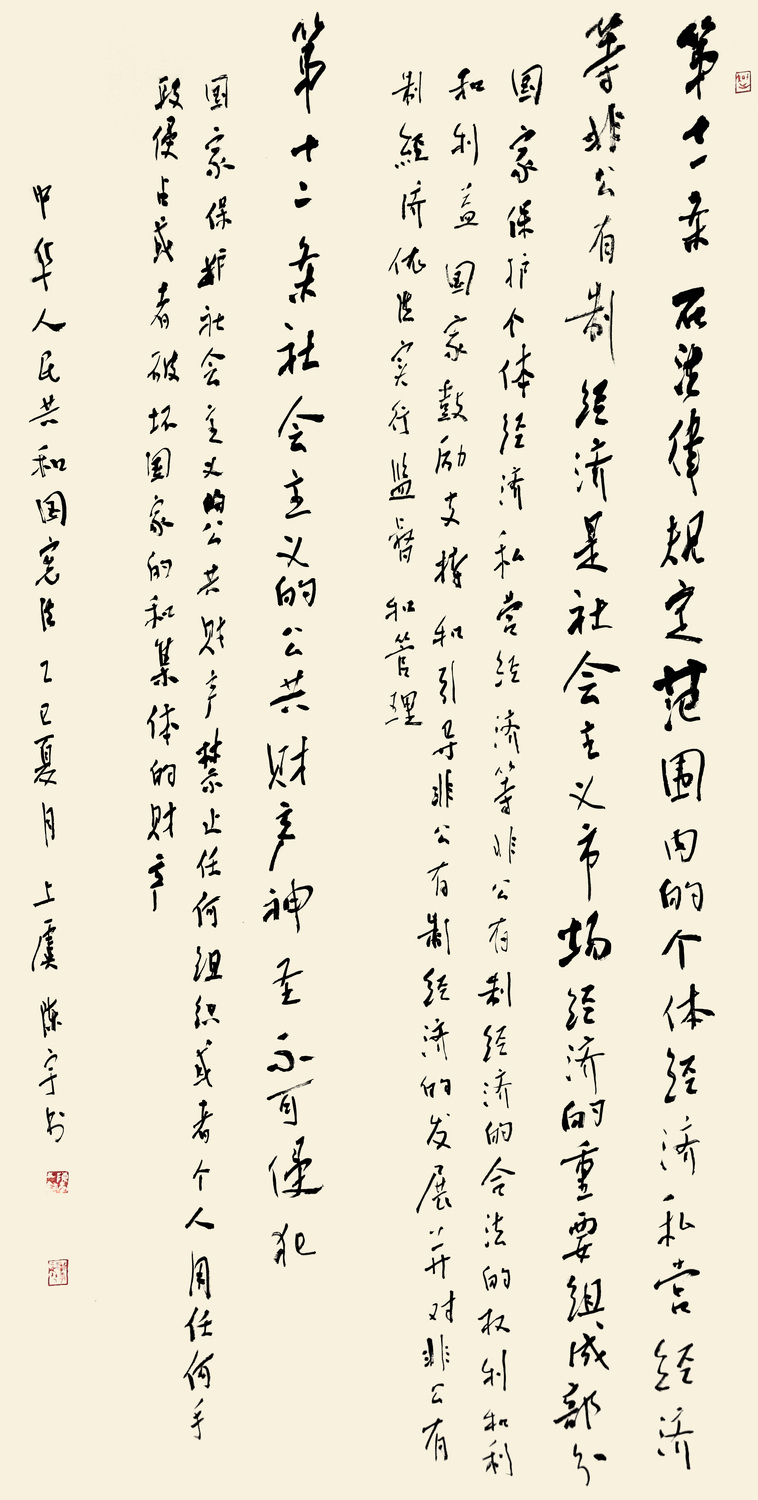 第十一条 在法律规定范围内的个体经济私营经济
等非公有制经济是社会主义市场经济的重要组成部分
国家保护个体经济私营经济等非公有制经济的合法的权利和利
和利益国家鼓励支持和引导非公有制经济的发展并对非公有
制经济依法实行监督和管理
第十二条社会主义的公共财产神圣不可侵犯
国家保护社会主义的公共财产禁止任何组织或者个人用任何手
段侵占或者破坏国家的和集体的财产
中华人民共和国宪法乙巳夏月上虞陈宇书